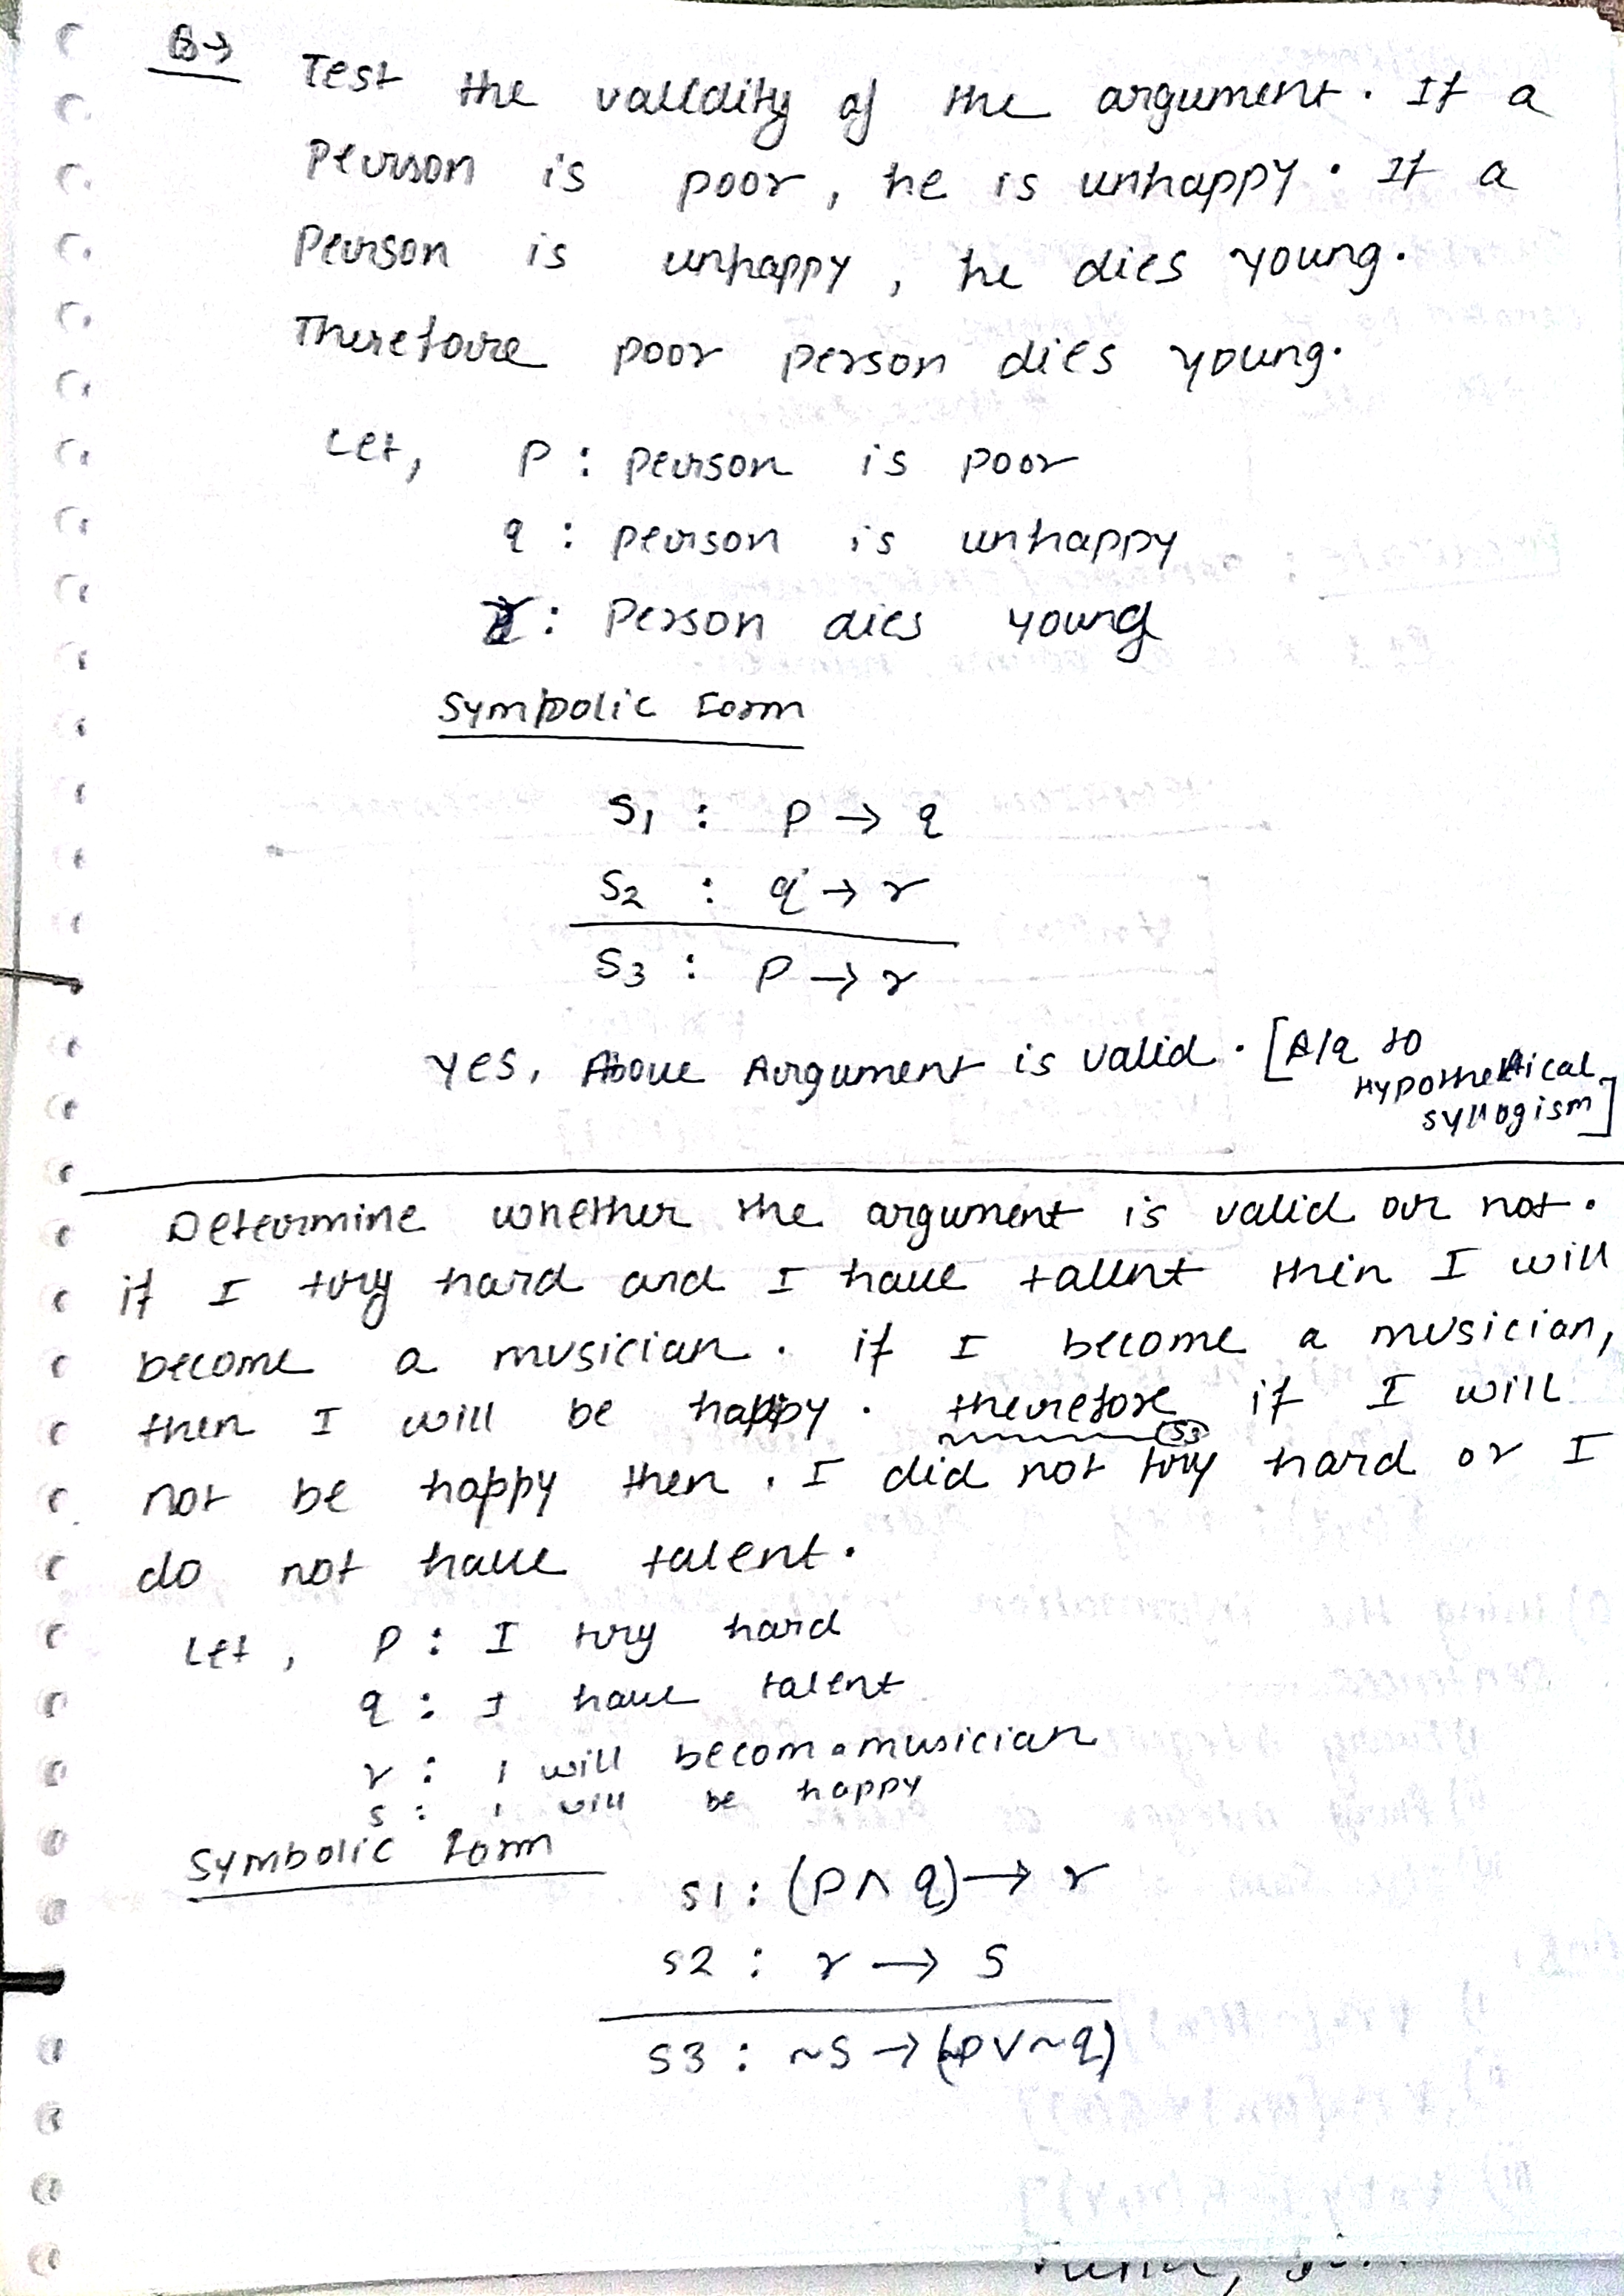 B→ Test the validity of the argument. If a
person is poor, he is unhappy. If a
person is unhappy, he dies young.
Therefore poor person dies young.
Let, P : person is poor
q : person is unhappy
r : Person dies young
Symbolic Form
S1 : P → q
S2 : q → r
S3 : P → r
Yes, Above Argument is valid. [A/q to
Hypothetical
syllogism]
Determine whether the argument is valid or not.
if I try hard and I have talent then I will
become a musician. if I become a musician,
then I will be happy. therefore if I will
S3
not be happy then, I did not try hard or I
do not have talent.
Let, P : I try hard
q : I have talent
r : I will becom a musician
s : I will be happy
Symbolic Form
S1 : (P ∧ q) → r
S2 : r → S
S3 : ~S → (~P ∨ ~q)